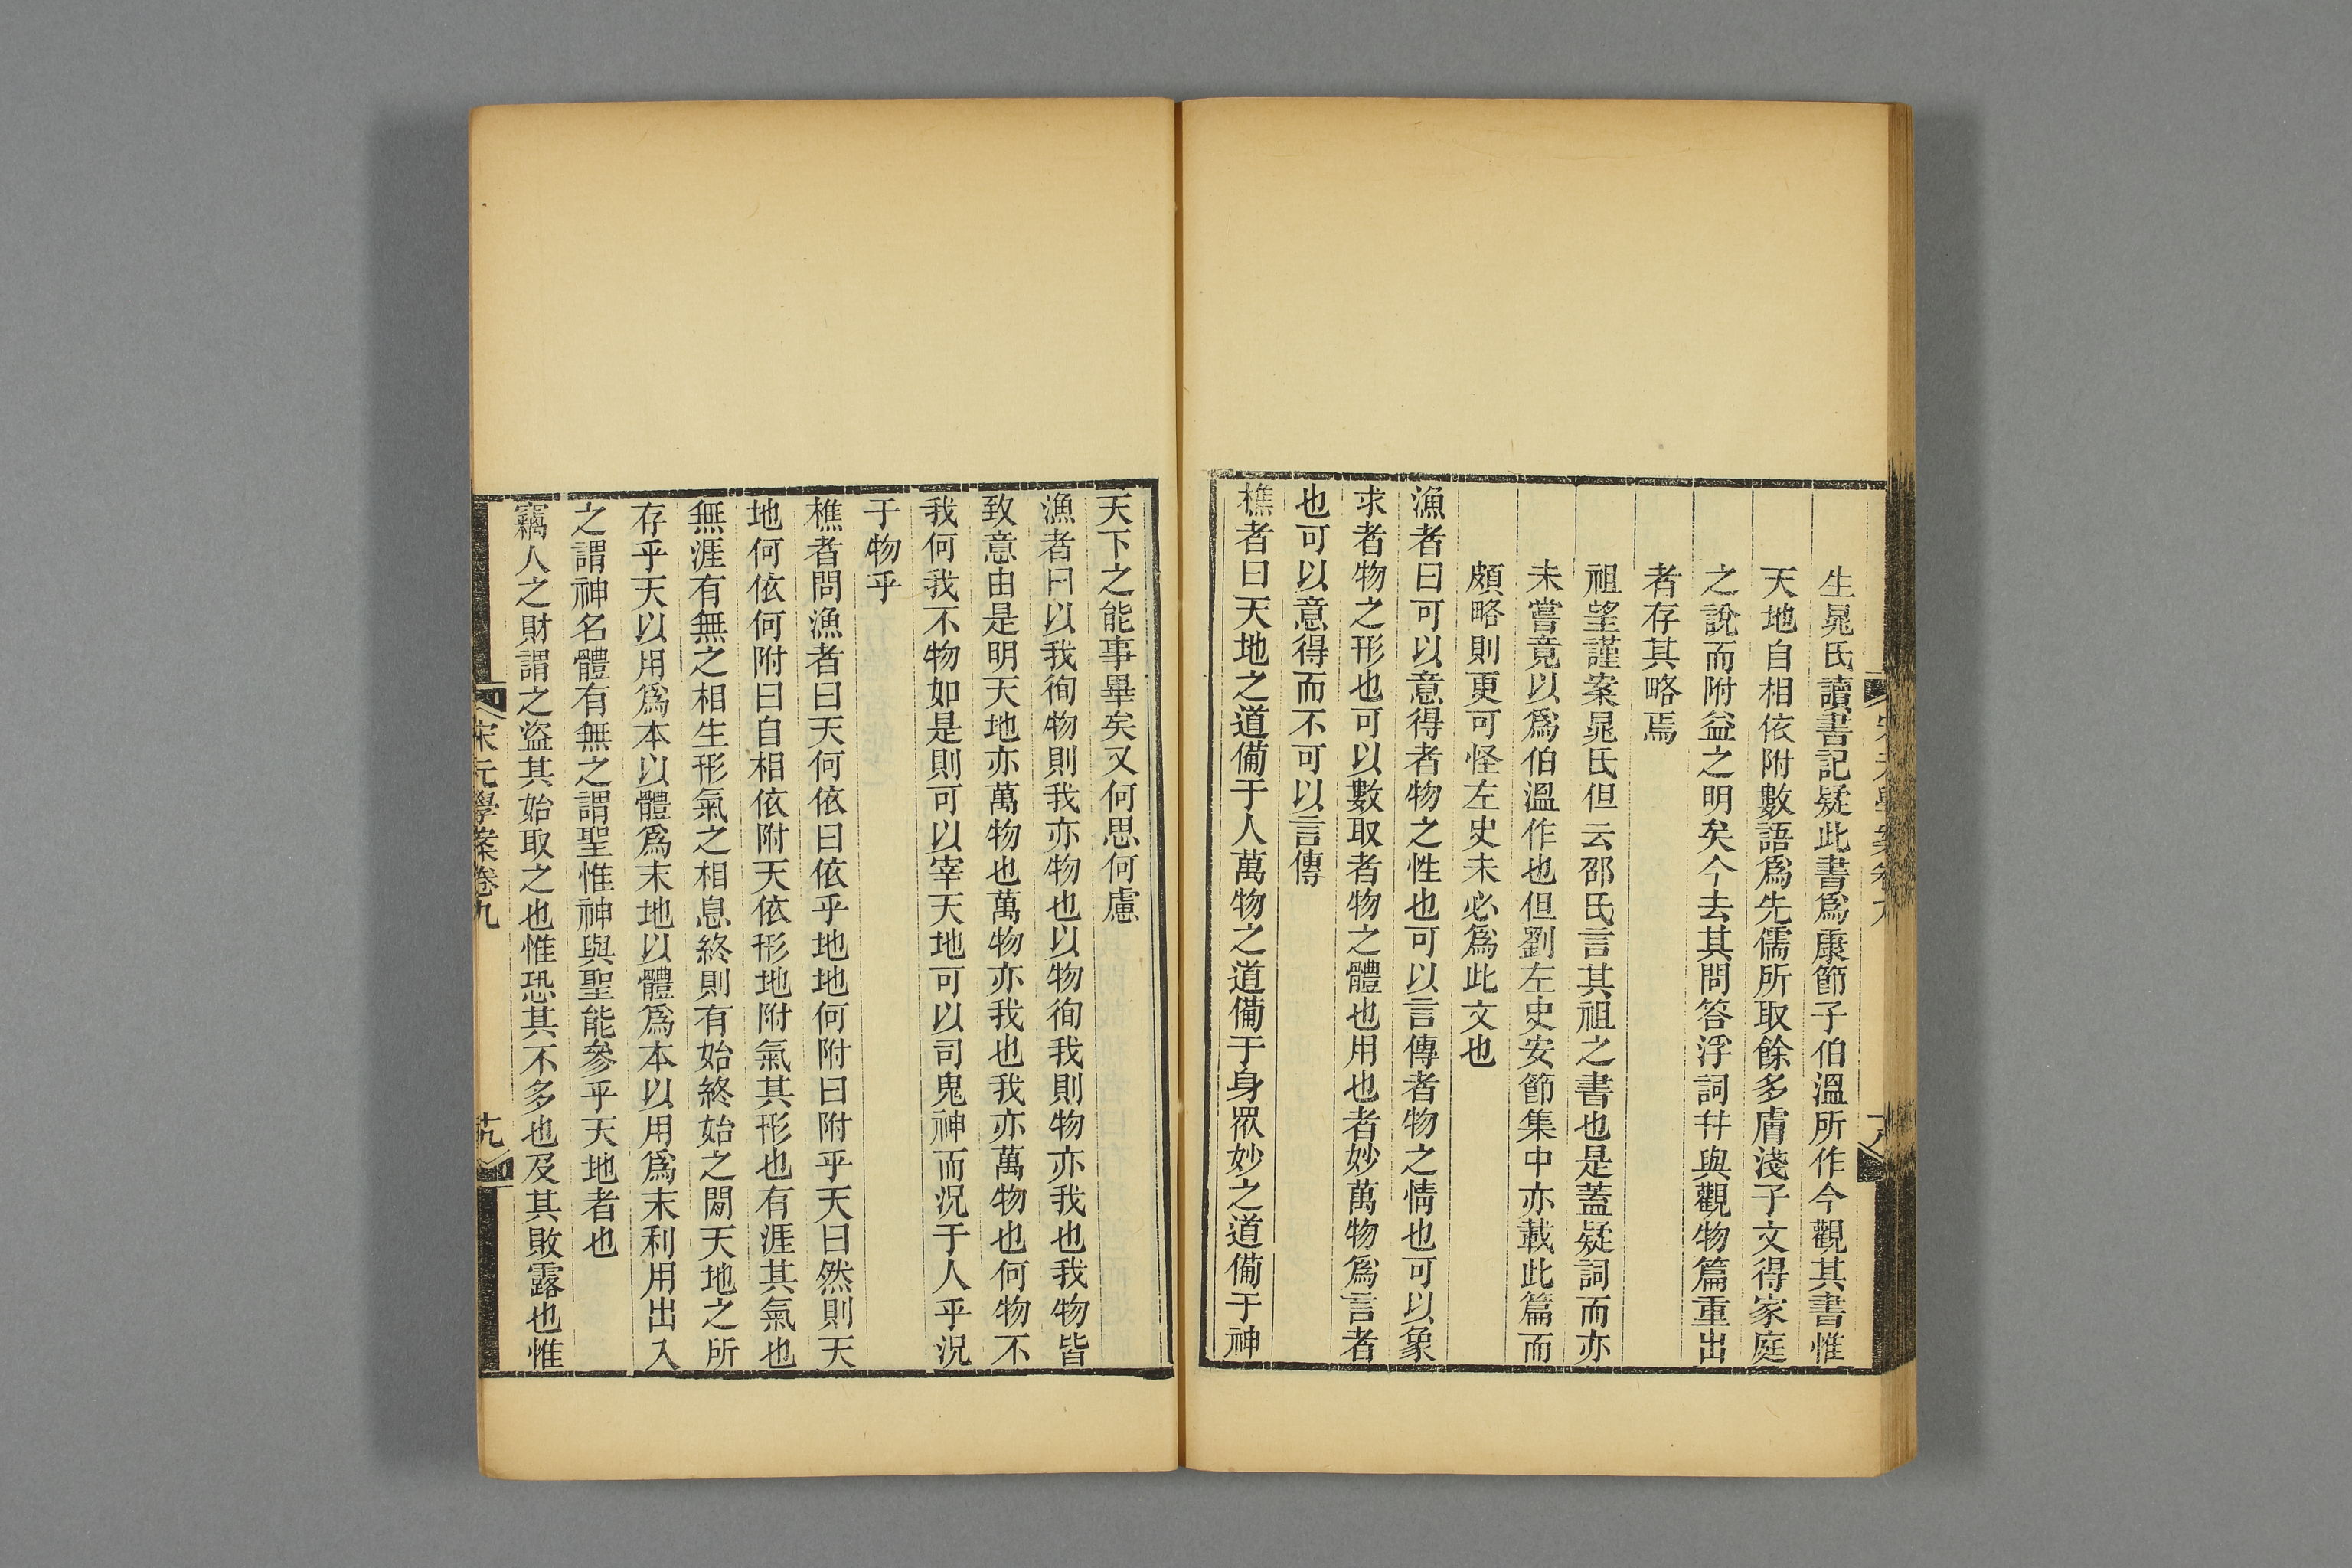 生晁氏讀書記疑此書爲康節子伯溫所作今觀其書惟
天地自相依附數語爲先儒所取餘多膚淺子文得家庭
之說而附益之明矣今去其問答浮詞幷與觀物篇重出
者存其略焉
祖望謹案晁氏但云邵氏言其祖之書也是蓋疑詞而亦
未嘗竟以爲伯溫作也但劉左史安節集中亦載此篇而
頗略則更可怪左史未必爲此文也
漁者曰可以意得者物之性也可以言傳者物之情也可以象
求者物之形也可以數取者物之體也用也者妙萬物爲言者
也可以意得而不可以言傳
樵者曰天地之道備于人萬物之道備于身眾妙之道備于神
天下之能事畢矣又何思何慮
漁者曰以我徇物則我亦物也以物徇我則物亦我也我物皆
致意由是明天地亦萬物也萬物亦我也我亦萬物也何物不
我何我不物如是則可以宰天地可以司鬼神而況于人乎況
于物乎
樵者問漁者曰天何依曰依乎地地何附曰附乎天曰然則天
地何依何附曰自相依附天依形地附氣其形也有涯其氣也
無涯有無之相生形氣之相息終則有始終始之閒天地之所
存乎天以用爲本以體爲末地以體爲本以用爲末利用出入
之謂神名體有無之謂聖惟神與聖能參乎天地者也
竊人之財謂之盜其始取之也惟恐其不多也及其敗露也惟
宋元學案卷九
十九